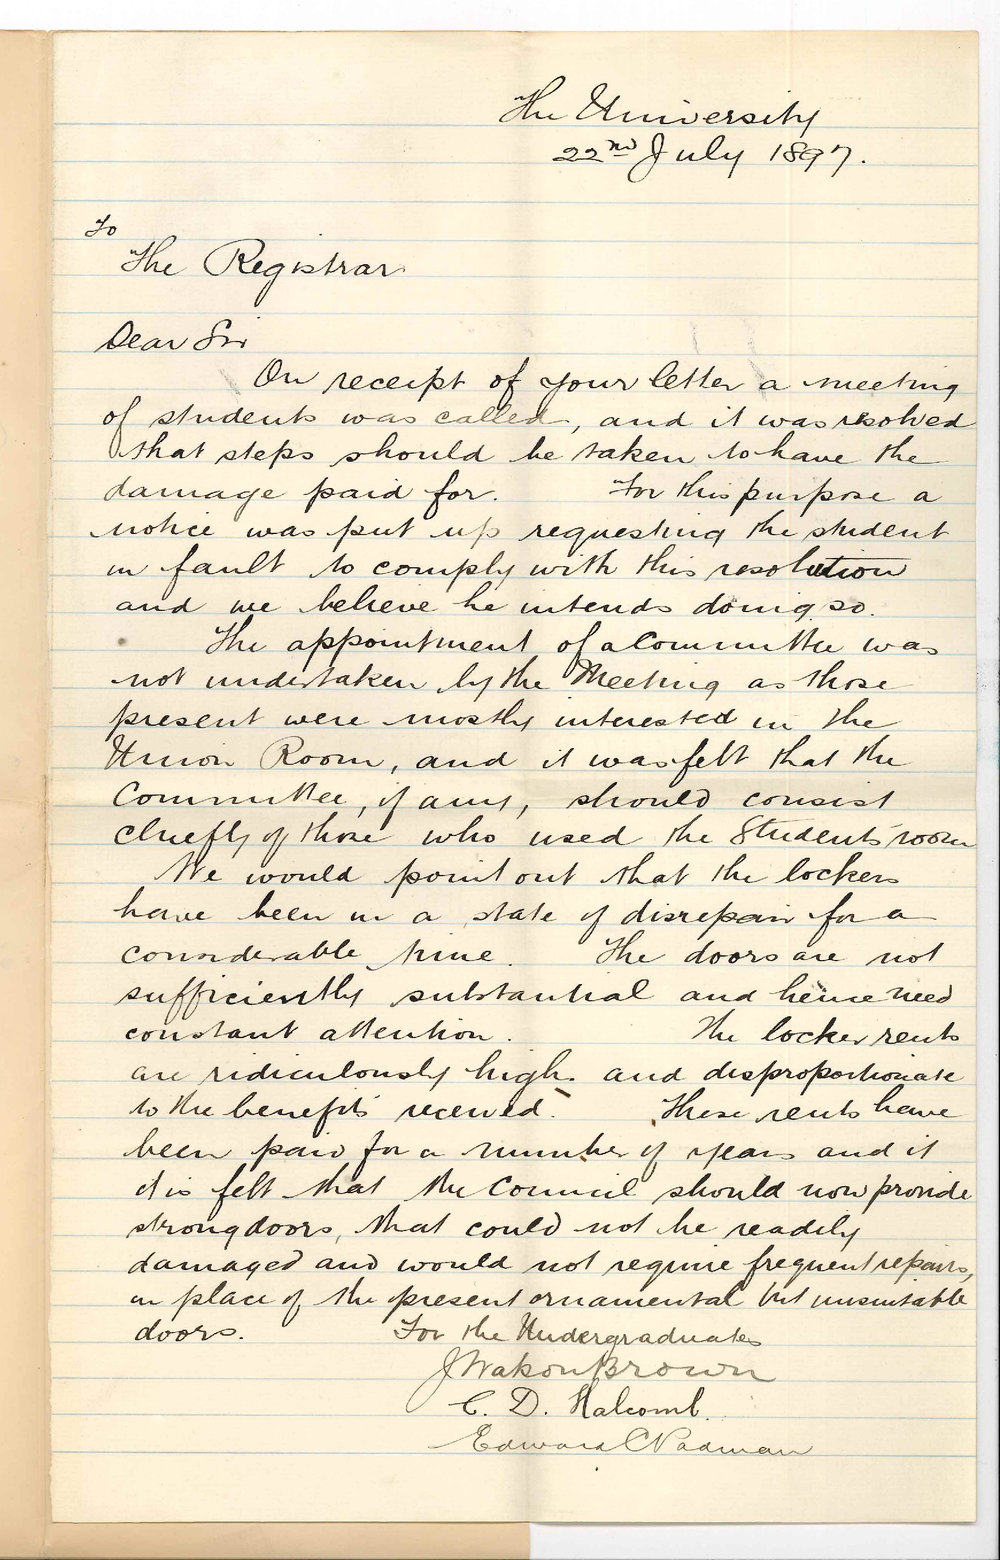 The University
22nd July 1897.
To
The Registrar
Dear Sir
On receipt of your letter a meeting
of students was called, and it was resolved
that steps should be taken to have the
damage paid for. For this purpose a
notice was put up requesting the student
in fault to comply with this resolution
and we believe he intends doing so.
The appointment of a Committee was
not undertaken by the Meeting as those
present were mostly interested in the
Union Room, and it was felt that the
Committee, if any, should consist
chiefly of those who used the Students' room
We would point out that the lockers
have been in a state of disrepair for a
considerable time. The doors are not
sufficiently substantial and hence need
constant attention. The locker rents
are ridiculously high and disproportionate
to the benefits received. These rents have
been paid for a number of years and it
it is felt that the Council should now provide
strong doors, that could not be readily
damaged and would not require frequent repairs,
in place of the present ornamental but unsuitable
doors. For the Undergraduates
J Brown
C. D. Halcomb.
Edward C Padman